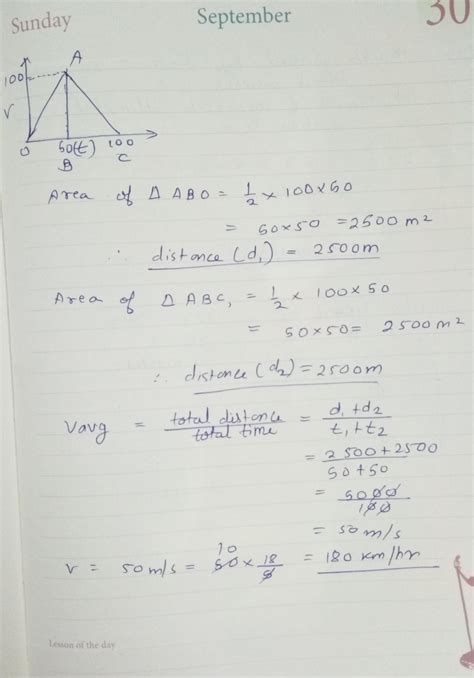 Sunday
September
30
A
100
V
O 50(t) 100
B C
Area of Δ ABO = 1/2 × 100 × 50
= 50 × 50 = 2500 m²
∴ distance (d₁) = 2500m
Area of Δ ABC, = 1/2 × 100 × 50
= 50 × 50 = 2500 m²
∴ distance (d₂) = 2500m
Vavg = total distance/total time = d₁+d₂/t₁+t₂
= 2500+2500/50+50
= 5000/100
= 50 m/s
10
v = 50 m/s = 50 × 18/5 = 180 km/hr
Lesson of the day